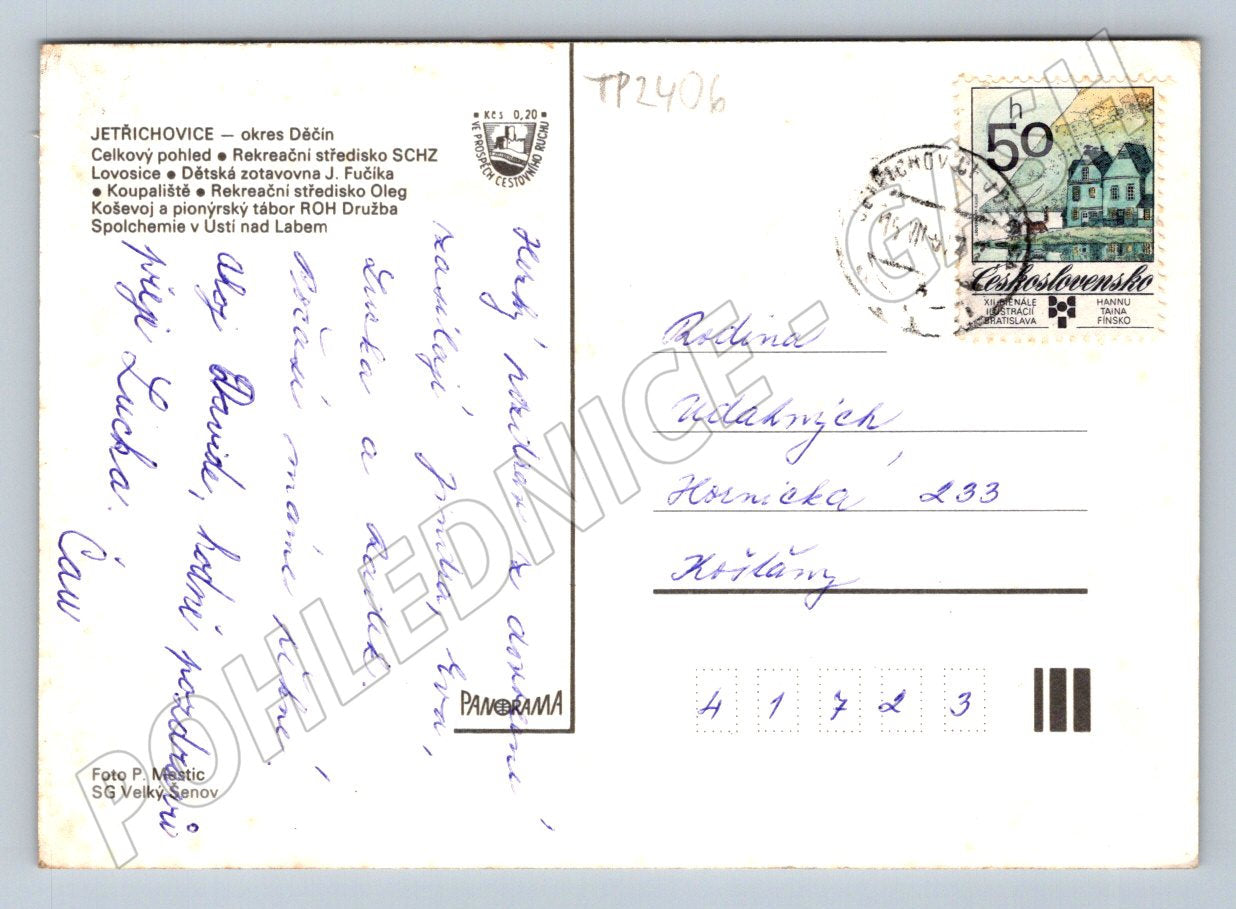 TP2406
JETŘICHOVICE — okres Děčín
Celkový pohled • Rekreační středisko SCHZ
Lovosice • Dětská zotavovna J. Fučíka
• Koupaliště • Rekreační středisko Oleg
Koševoj a pionýrský tábor ROH Družba
Spolchemie v Ústí nad Labem
Kčs 0,20
VE PROSPĚCH CESTOVNÍHO RUCHU
Hezký z
zasílají Jimka, Eva,
Lucka a Radek.
Počasí máme
ahoj Davide, hodně pozdravů
přeje Lucka.
Čau
PANORAMA
Foto P. Mestic
SG Velký Šenov
h
50
Československo
XII. BIENÁLE
ILUSTRACÍ
BRATISLAVA
HANNU
TAINA
FÍNSKO
Rodina
Udatných,
Hornická 233
Košťany
4 1 7 2 3
POHLEDNICE - GASH